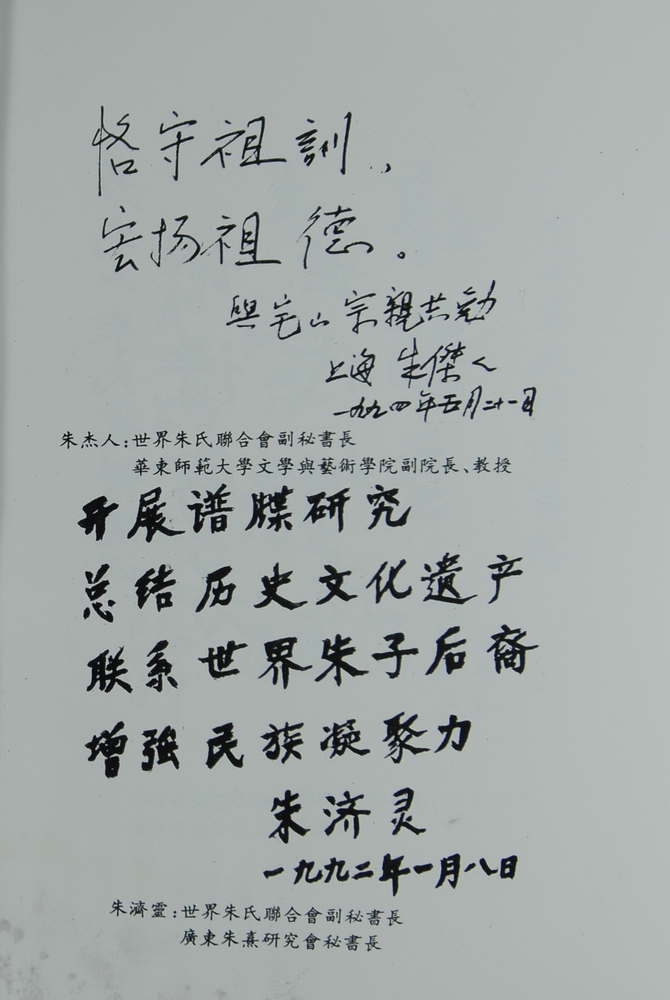 恪守祖訓，
宏扬祖德。
與宅山宗親共勉
上海 朱傑人
一九九四年五月二十一日
朱杰人：世界朱氏聯合會副秘書長
華東師範大學文學與藝術學院副院長、教授
开展谱牒研究
总结历史文化遗产
联系世界朱子后裔
增強民族凝聚力
朱济灵
一九九二年一月八日
朱濟靈：世界朱氏聯合會副秘書長
廣東朱熹研究會秘書長